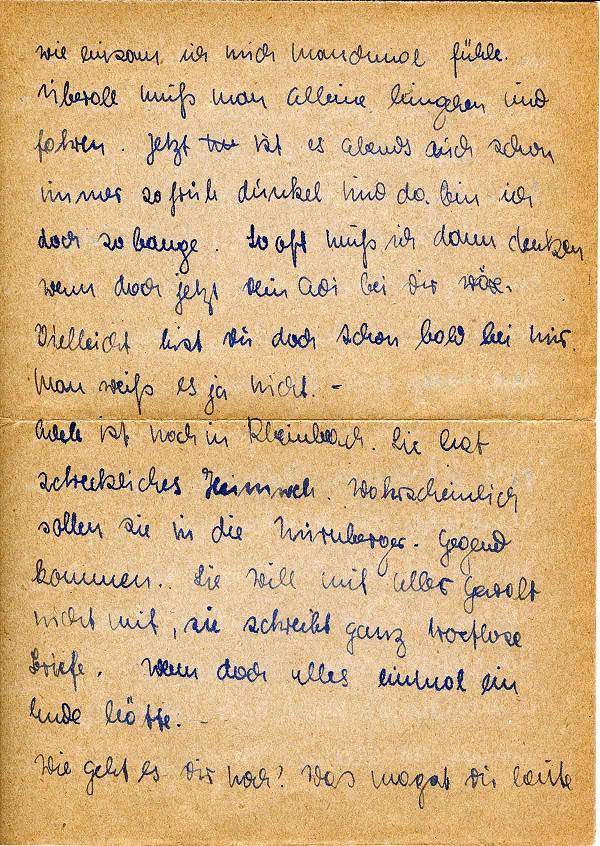 wie einsam ich mich manchmal fühle.
Überall muß man alleine hingehen und
fahren. Jetzt ist es abends auch schon
immer so früh dunkel und da bin ich
doch so bange. So oft muß ich dann denken
wenn doch jetzt dein Adi bei dir wäre.
Vielleicht bist du doch schon bald bei mir.
Man weiß es ja nicht. -
ist noch in Rheinbach. Sie hat
schreckliches Heimweh. Wahrscheinlich
sollen sie in die Nürnberger. Gegend
kommen.. Sie will mit aller Gewalt
nicht mit, sie schreibt ganz trostlose
Briefe. Wenn doch alles einmal ein
Ende hätte. -
Wie geht es dir noch? Was magst du heute